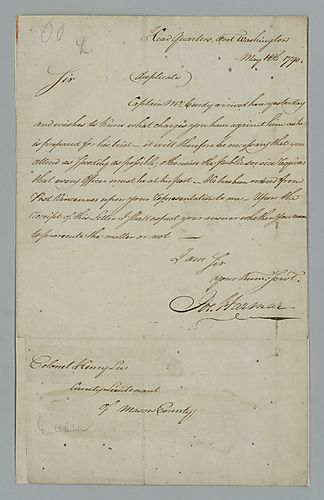 Head Quarters, Fort Washington
May 18th, 1790.
Sir
(Duplicate)
Captain McCurdy arrived here yesterday
and wishes to know what charges you have against him as he
is prepared for his trial - it will therefore be necessary that you
attend as speedily as possible, otherwise the public service requires
that every Officer must be at his post - He has been ordered from
Post Vincennes upon your representation to me - Upon the
receipt of this Letter I shall expect your answer whether you mean
to prosecute the matter or not -
I am Sir
your humb: servt.
Jos. Harmar
Colonel Henry Lee
County Lieutenant
of Mason County